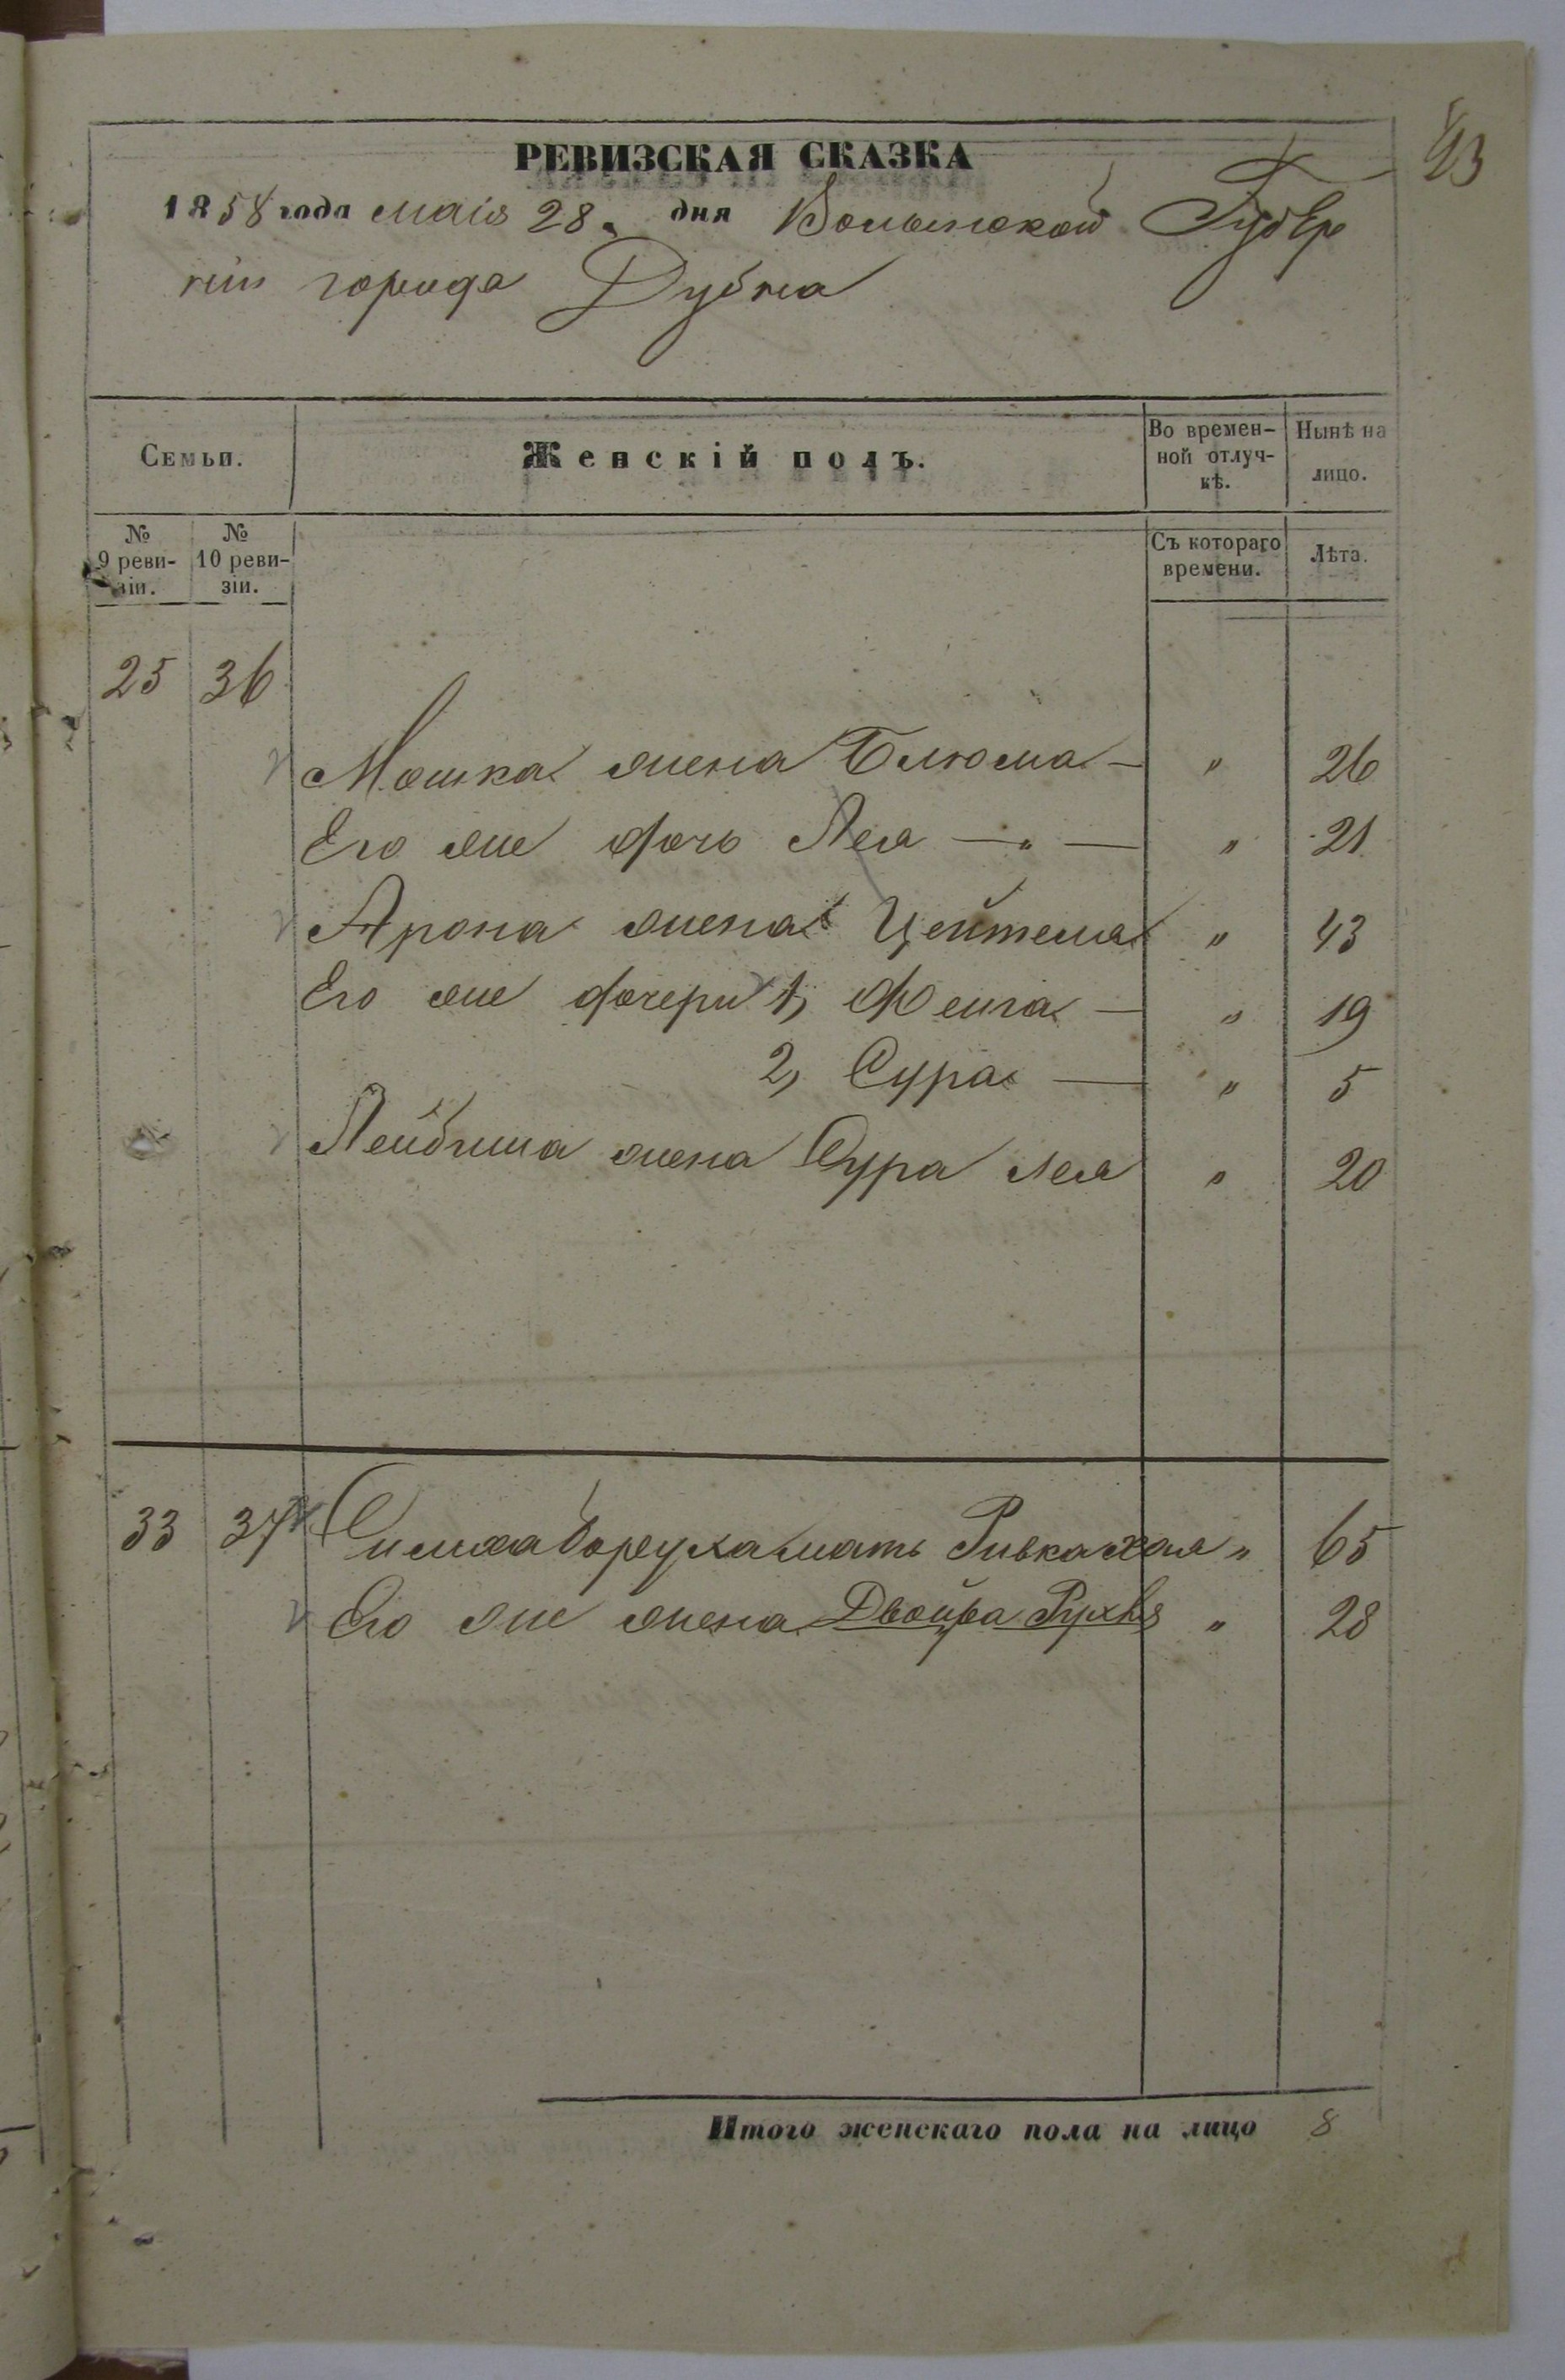 43
РЕВИЗСКАЯ СКАЗКА
1858 года маія 28. дня Волынской Губер
ніи города Дубна
Семьи.
Женскій полъ.
Во времен-
ной отлуч-
кѣ.
Нынѣ на
лицо.
№
9 реви-
зіи.
№
10 реви-
зіи.
Съ котораго
времени.
Лѣта.
25 36
Мошка жена Блюма — " 26
Его же дочь Лея — " — " 21
Арона жена Цейтела " 43
Его же дочери 1, Феига — " 19
2, Сура — " 5
Лейбиша жена Сура Лея " 20
33 37 Симха Боруха мать Ривка Хая " 65
Его же жена Двойра Рухля " 28
Итого женскаго пола на лицо 8